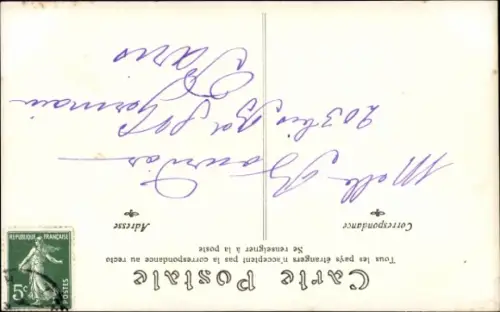 Carte Postale
Tous les pays étrangers n'acceptent pas la correspondance au recto
Se renseigner à la poste
Correspondance
Adresse
Melle Bourdier
203 bis Bd St Germain
Paris
REPUBLIQUE FRANÇAISE
5c
POSTES